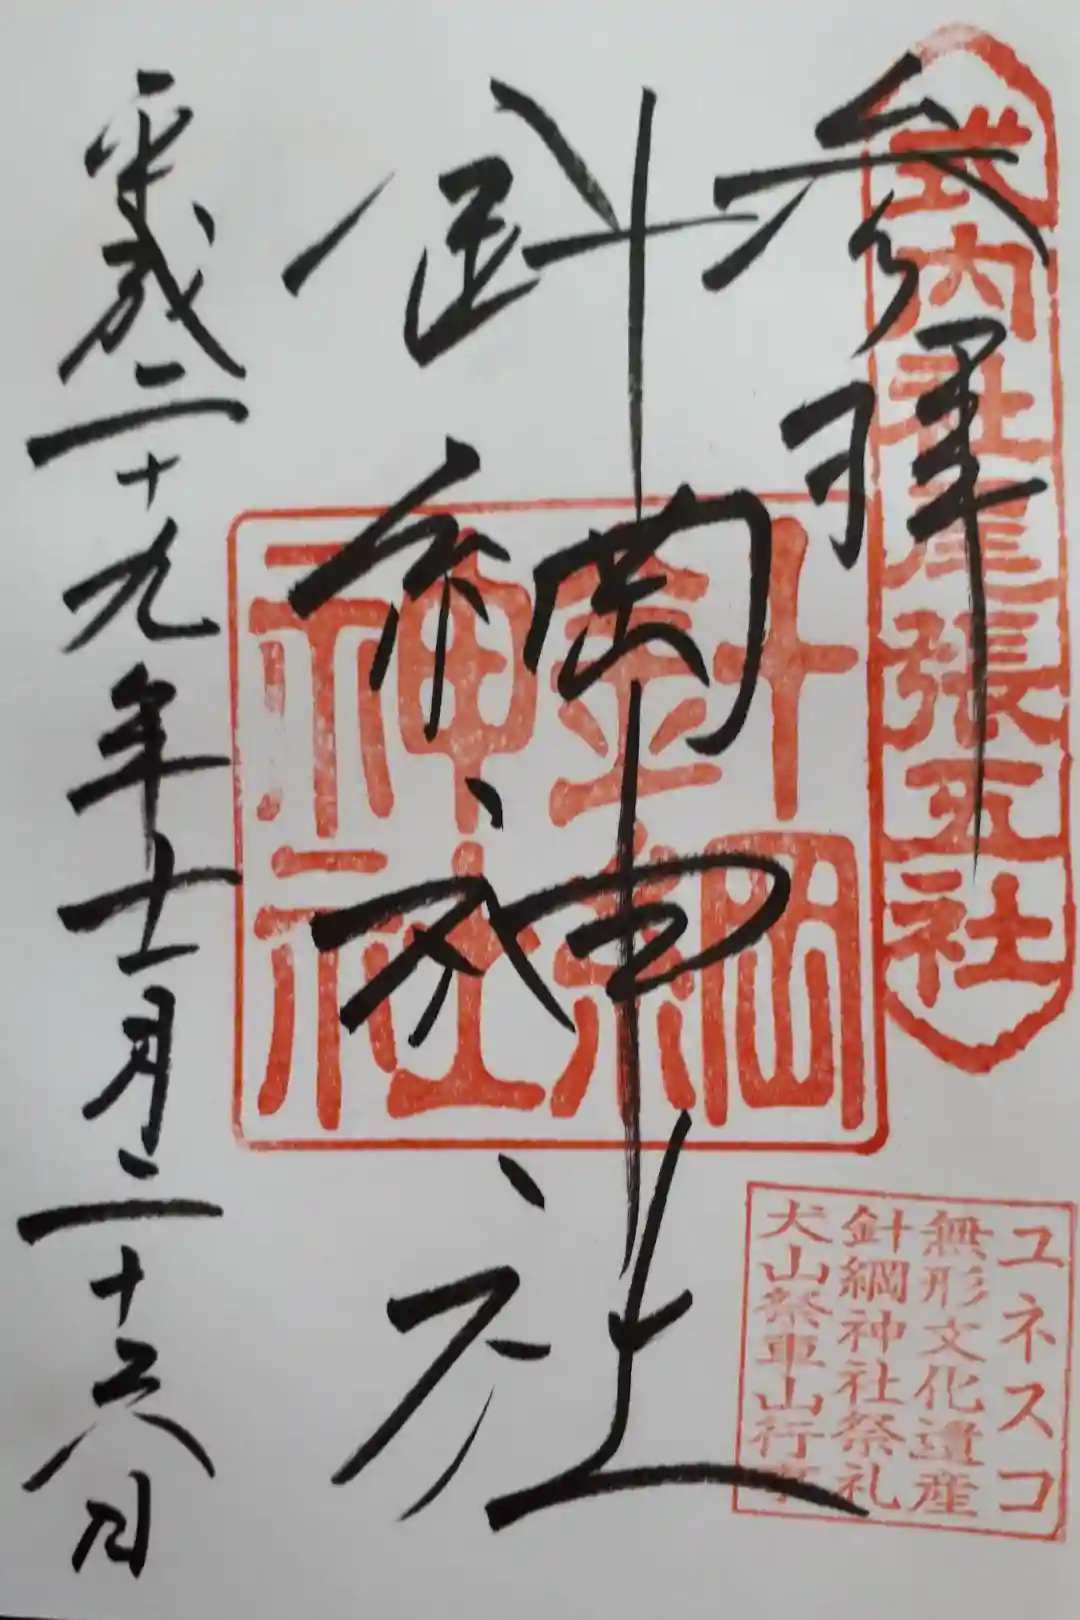 参拝
式内社尾張五社
針綱神社
針綱神社
平成二十九年十一月二十六日
ユネスコ
無形文化遺産
針綱神社祭礼
犬山祭車山行事